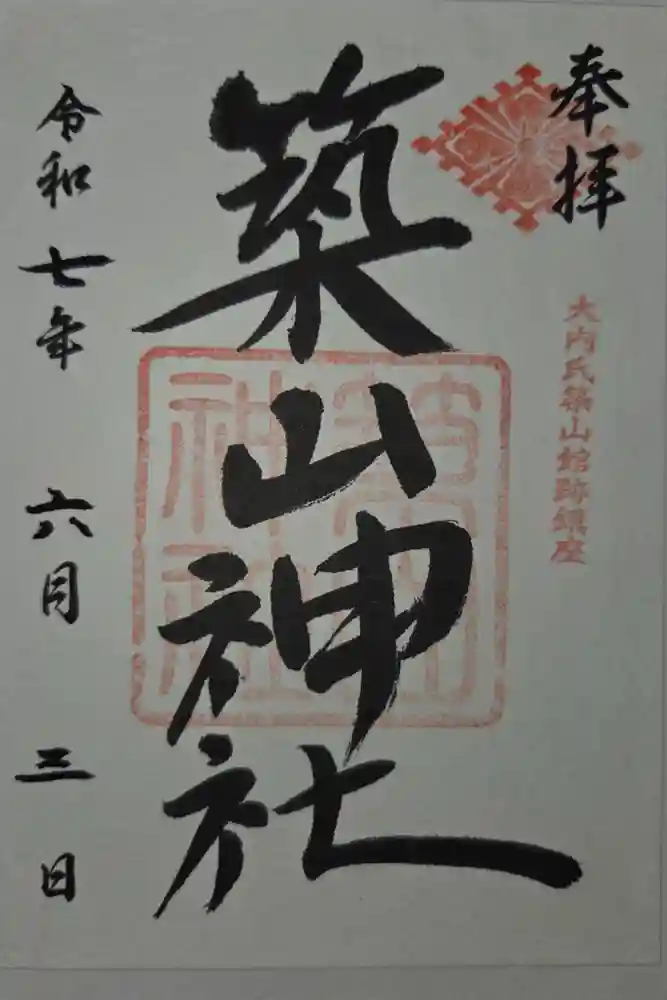 奉拝
大内氏築山館跡鎮座
築山神社
築山
神社
令和七年 六月 三日